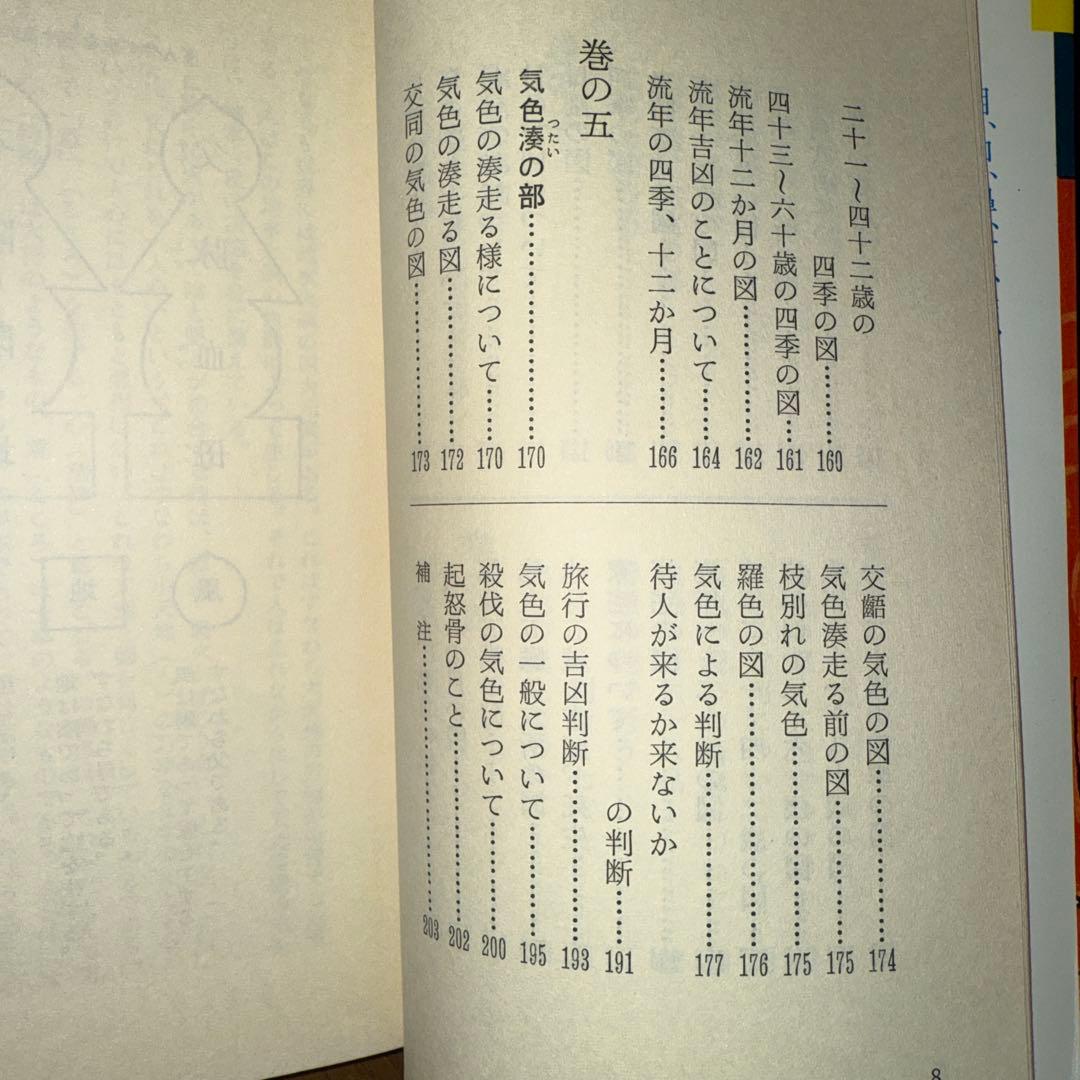 二十一～四十二歳の
四季の図……160
四十三～六十歳の四季の図…161
流年十二か月の図……………162
流年吉凶のことについて……164
流年の四季、十二か月………166
巻の五
気色湊の部………………………170
つたい
気色の湊走る様について……170
気色の湊走る図…………………172
交同の気色の図…………………173
交齬の気色の図…………………174
気色湊走る前の図………………175
枝別れの気色……………………175
羅色の図…………………………176
気色による判断…………………177
待人が来るか来ないか
の判断……191
旅行の吉凶判断…………………193
気色の一般について……………195
殺伐の気色について……………200
起怒骨のこと……………………202
補注………………………………203
8